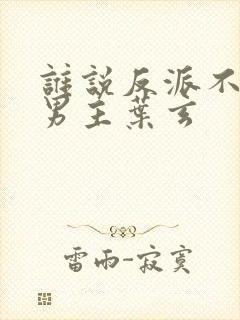 誰說反派不
男主葉玄
雷雨-寂寞